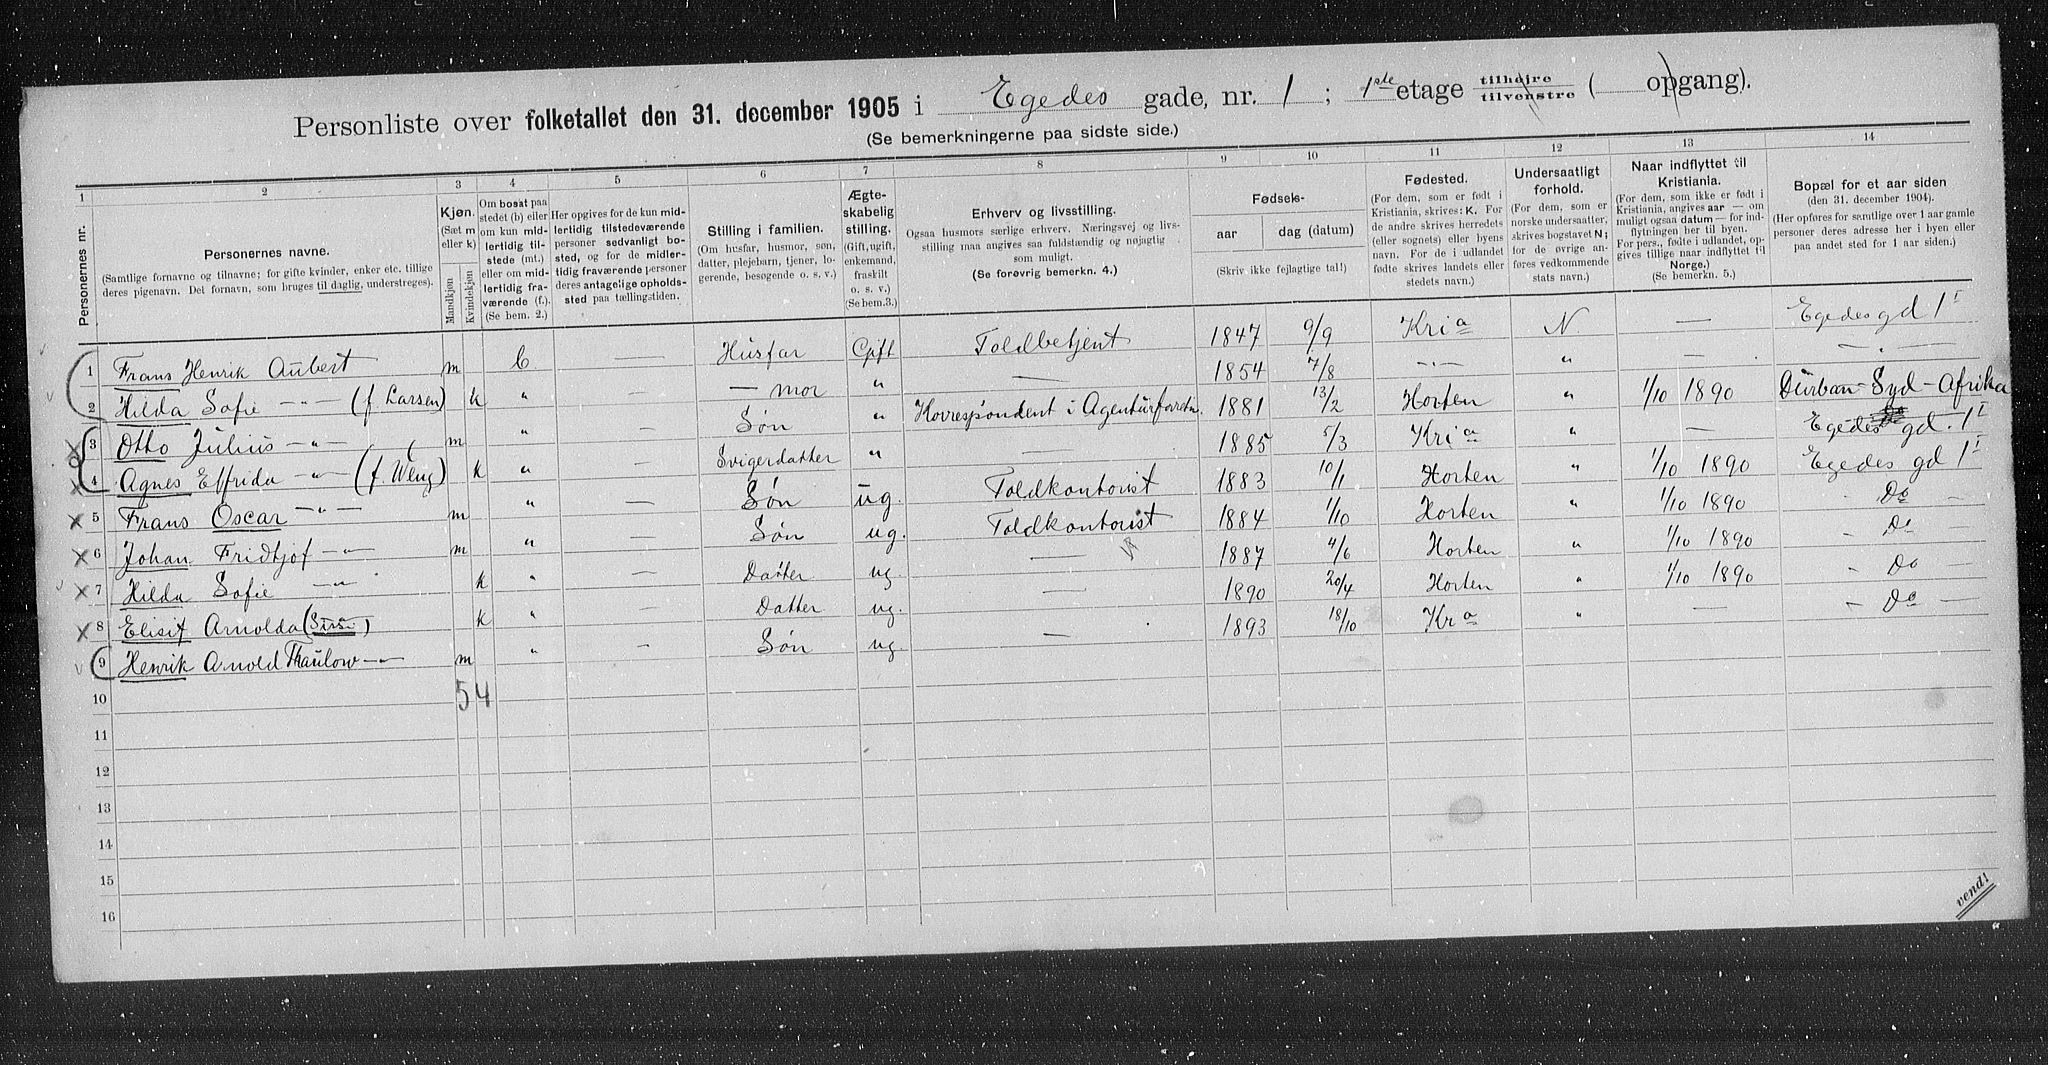 Personliste over folketallet den 31. december 1905 i Egedes gade, nr. 1 ; 1ste etage tilhøire tilvenstre ( opgang).
(Se bemerkningerne paa sidste side.)
1 2 3 4 5 6 7 8 9 10 11 12 13 14
Personernes nr.
Personernes navne.
(Samtlige fornavne og tilnavne; for gifte kvinder, enker etc. tillige deres pigenavn. Det fornavn, som bruges til daglig, understreges).
Kjøn. (Sæt m eller k)
Mandkjøn Kvindekjøn
Om bosat paa stedet (b) eller om kun midlertidig tilstede (mt.) eller om midlertidig fraværende (f.). (Se bem. 2.)
Her opgives for de kun midlertidig tilstedeværende personer sedvanligt bosted, og for de midlertidig fraværende personer deres antagelige opholdssted paa tællingstiden.
Stilling i familien.
(Om husfar, husmor, søn, datter, plejebarn, tjener, logerende, besøgende o. s. v.)
Ægteskabelig stilling.
(Gift, ugift, enkemand, fraskilt o. s. v.) (Se bem. 3.)
Erhverv og livsstilling.
Ogsaa husmors særlige erhverv. Næringsvej og livsstilling maa angives saa fuldstændig og nøjagtig som muligt.
(Se forøvrig bemerkn. 4.)
Fødsels-
aar dag (datum)
(Skriv ikke fejlagtige tal!)
Fødested.
(For dem, som er født i Kristiania, skrives: K. For de andre skrives herredets (eller sognets) eller byens navn. For de i udlandet fødte skrives landets eller stedets navn.)
Undersaatligt forhold.
(For dem, som er norske undersaatter, skrives bogstavet N; for de øvrige anføres vedkommende stats navn.)
Naar indflyttet til Kristiania.
(For dem, som ikke er født i Kristiania, angives aar — om muligt ogsaa datum — for indflytningen her til byen. For pers., fødte i udlandet, opgives tillige naar indflyttet til Norge.) (Se bemerkn. 5.)
Bopæl for et aar siden
(den 31. december 1904).
(Her opføres for samtlige over 1 aar gamle personer deres adresse her i byen eller paa andet sted for 1 aar siden.)
1 Frans Henrik Aubert m b. — Husfar Gift Toldbetjent 1847 9/9 Kria N — Egedes gd 1 I
2 Hilda Sofie —"— (f. Larsen) k " — — mor " — 1854 7/8 —"— " — —"—
3 Otto Julius —"— m " — Søn " Korrespondent i Agenturforretn. 1881 13/2 Horten " 1/10 1890 Durban-Syd-Afrika
4 Agnes Elfrida —"— (f. Weng) k " — Svigerdatter " — 1885 5/3 Kria " — Egedes gd. 1 I
5 Frans Oscar —"— m " — Søn ug. Toldkontorist 1883 10/1 Horten " 1/10 1890 Egedes gd 1 I
6 Johan Fridtjof —"— m " — Søn ug. Toldkontorist 1884 1/10 Horten " 1/10 1890 Do —
7 Hilda Sofie —"— k " — Datter ug — 1887 4/6 Horten " 1/10 1890 - Do
8 Elisif Arnolda (Sissi) k " — Datter ug. — 1890 20/4 Horten " 1/10 1890 - Do
9 Henrik Arnold Thaulow —"— m " — Søn ug. — 1893 18/10 Kra " — — Do —
10 5 4
11
12
13
14
15
16
vend!